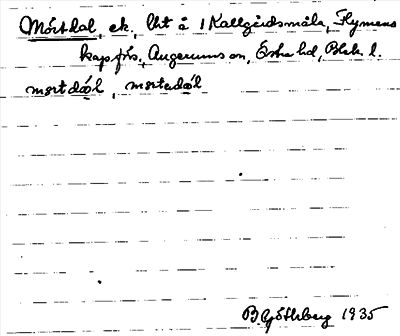 Mörtdal, ek, lht å 1 Kallgårdsmåla, Flymens
kapförs., Augerums sn, Östra hd, Blek. l.
mortdαl, mortadαl
B Götlberg 1935